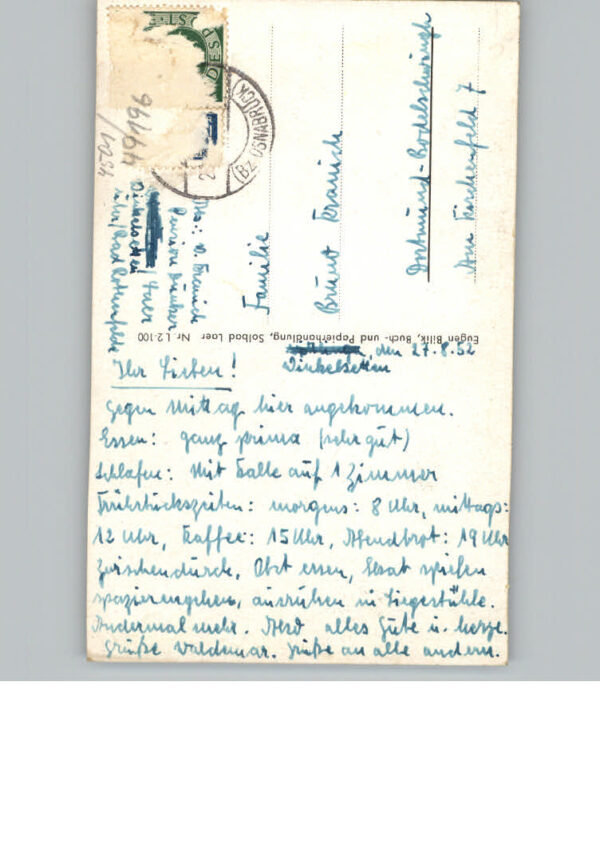 DESP
(Bz OSNABRÜCK)
49196
/10254
Abs.: v. Kranich
Pension
/ Laer
über/Bad Rothenfelde
Familie
Bruno Kranich
Dortmund-Bodelschwingh
Am Kirchenfeld 7
Eugen Billik, Buch- und Papierhandlung, Solbad Laer Nr L 2-100
, den 27.8.52
Ihr Lieben!
Gegen Mittag hier angekommen.
Essen: ganz prima (sehr gut)
Schlafen: Mit Kalle auf 1 Zimmer
Frühstückszeiten: morgens: 8 Uhr, mittags:
12 Uhr, Kaffee: 15 Uhr, Abendbrot: 19 Uhr
Zwischendurch. Obst essen, Skat spielen
spazierengehen, ausruhen in Liegestühle.
Andermal mehr. Also alles Gute u. herzl.
Grüße Waldemar. Grüße an alle andern.